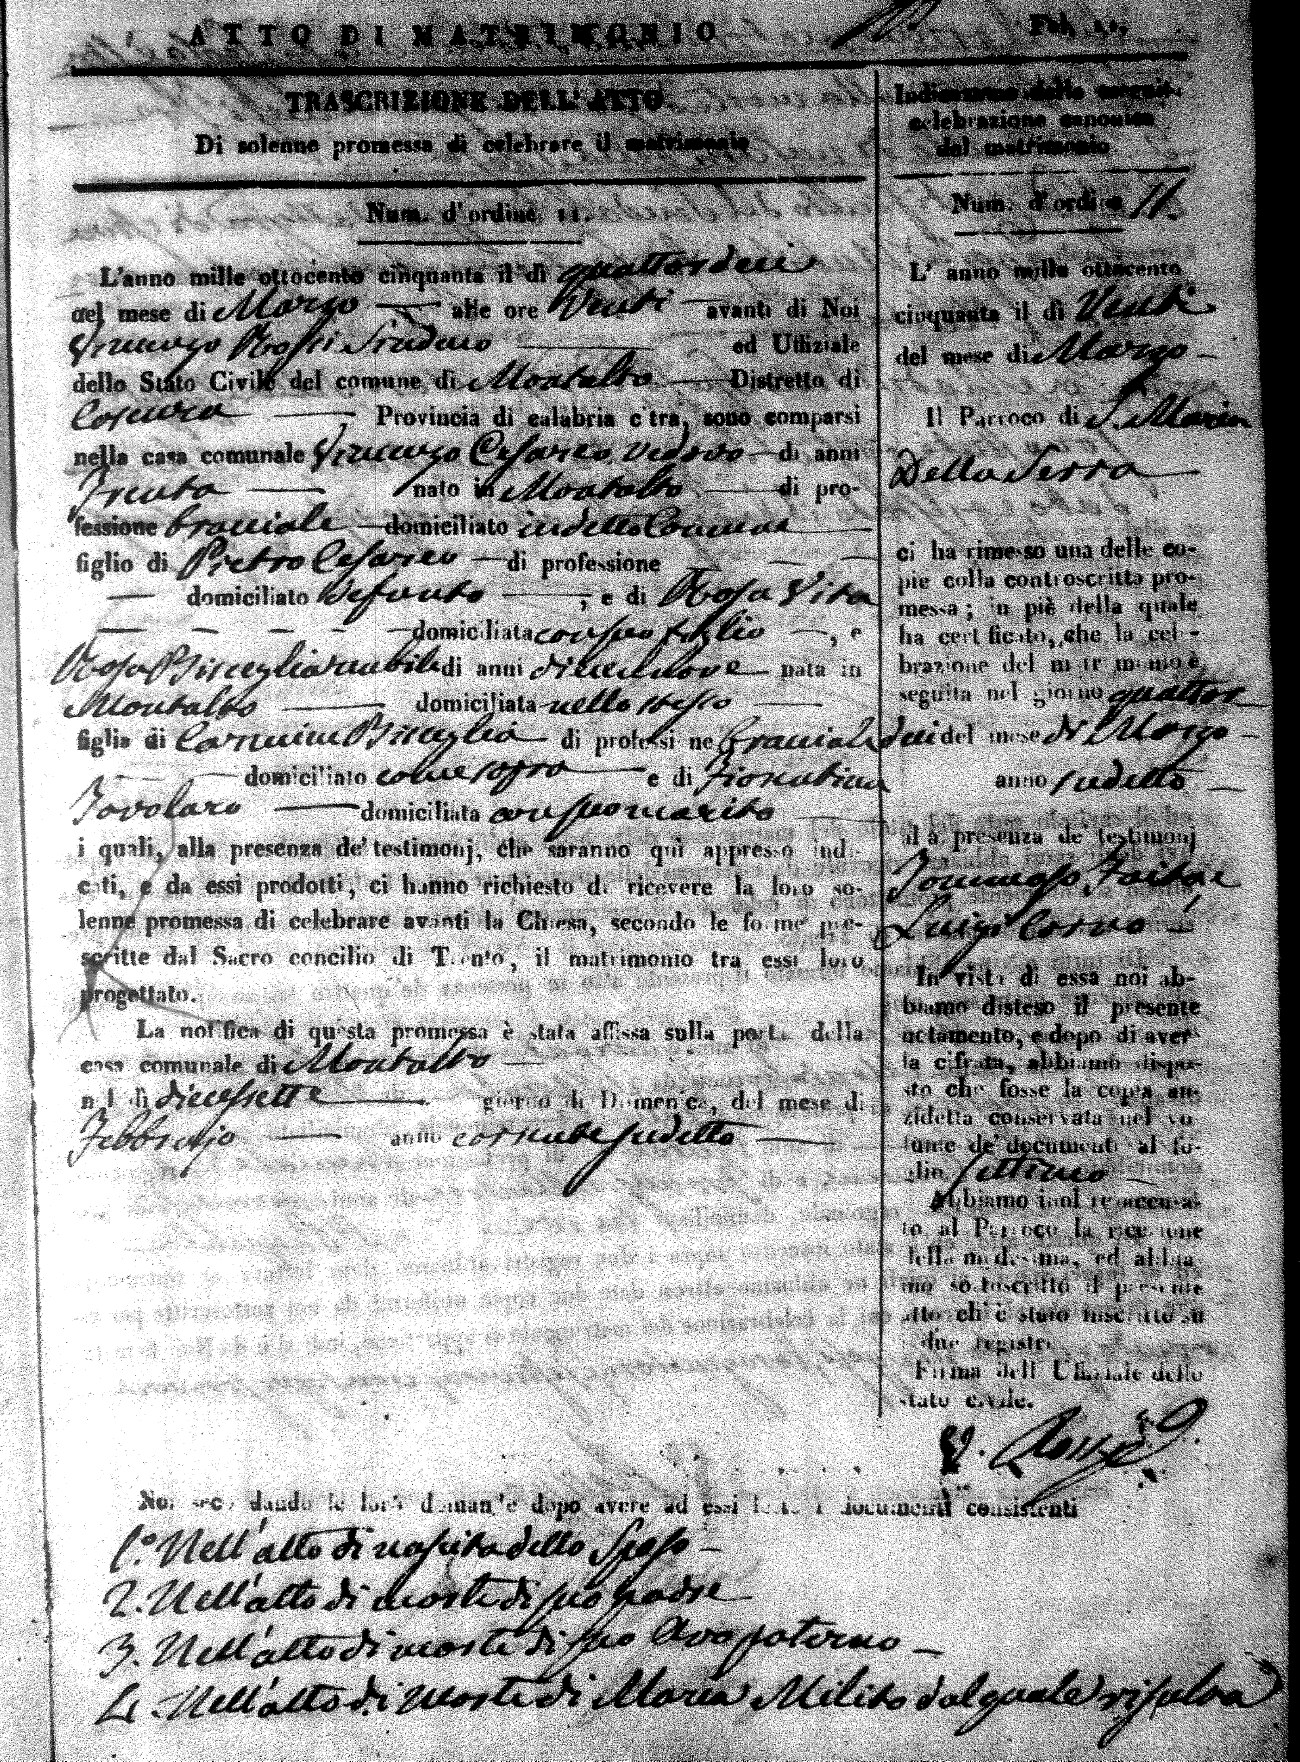 ATTO DI MATRIMONIO
Fol. 11.
TRASCRIZIONE DELL' ATTO
Di solenne promessa di celebrare il matrimonio
Num. d'ordine 11.
L'anno mille ottocento cinquanta il dì quattordeci
del mese di Marzo alle ore Venti avanti di Noi
Vincenzo Rossi Sindaco ed Uffiziale
dello Stato Civile del comune di Montalto Distretto di
Cosenza Provincia di calabria citra, sono comparsi
nella casa comunale Vincenzo Cesareo, vedovo di anni
Trenta nato in Montalto di pro-
fessione bracciale domiciliato in detto Comune
figlio di Pietro Cesareo di professione
domiciliato defonto, e di Rosa Vita
domiciliata con suo figlio, e
Rosa Bisceglia nubile di anni diecinove nata in
Montalto domiciliata nello stesso
figlia di Carmine Bisceglia di professione bracciale
domiciliato come sopra e di Fiorentina
Tavolaro domiciliata con suo marito
i quali, alla presenza de' testimonj, che saranno qui appresso indi-
cati, e da essi prodotti, ci hanno richiesto di ricevere la loro so-
lenne promessa di celebrare avanti la Chiesa, secondo le forme pre-
scritte dal Sacro concilio di Trento, il matrimonio tra essi loro
progettato.
La notifica di questa promessa è stata affissa sulla porta della
casa comunale di Montalto
nel dì diecessette giorno di Domenica, del mese di
Febbrajo anno corrente sudetto
Indicazione della seguita
celebrazione canonica
del matrimonio
Num. d'ordine 11.
L' anno mille ottocento
cinquanta il dì Venti
del mese di Marzo
Il Parroco di S. Maria
Della Serra
ci ha rimesso una delle co-
pie colla controscritta pro-
messa; in piè della quale
ha certificato, che la cele-
brazione del matrimonio è
seguita nel giorno quattor
deci del mese di Marzo
anno sudetto
alla presenza de' testimonj
Tommaso
Luigi
In vista di essa noi ab-
biamo disteso il presente
notamento, e dopo di aver-
la cifrata, abbiamo dispo-
sto che fosse la copia an-
zidetta conservata nel vo-
lume de' documenti al fo-
glio settimo
Abbiamo inoltre accusa-
to al Parroco la ricezione
della medesima, ed abbia-
mo sottoscritto il presente
atto ch'è stato inscritto su
due registri
Firma dell' Uffiziale dello
stato civile.
V. Rossi
Noi secondando le loro domande dopo avere ad essi letto i documenti consistenti
1.º Nell'atto di nascita dello Sposo
2. Nell'atto di morte di suo padre
3. Nell'atto di morte di suo Avo paterno
4. Nell'atto di morte di Maria Milito dal quale risulta